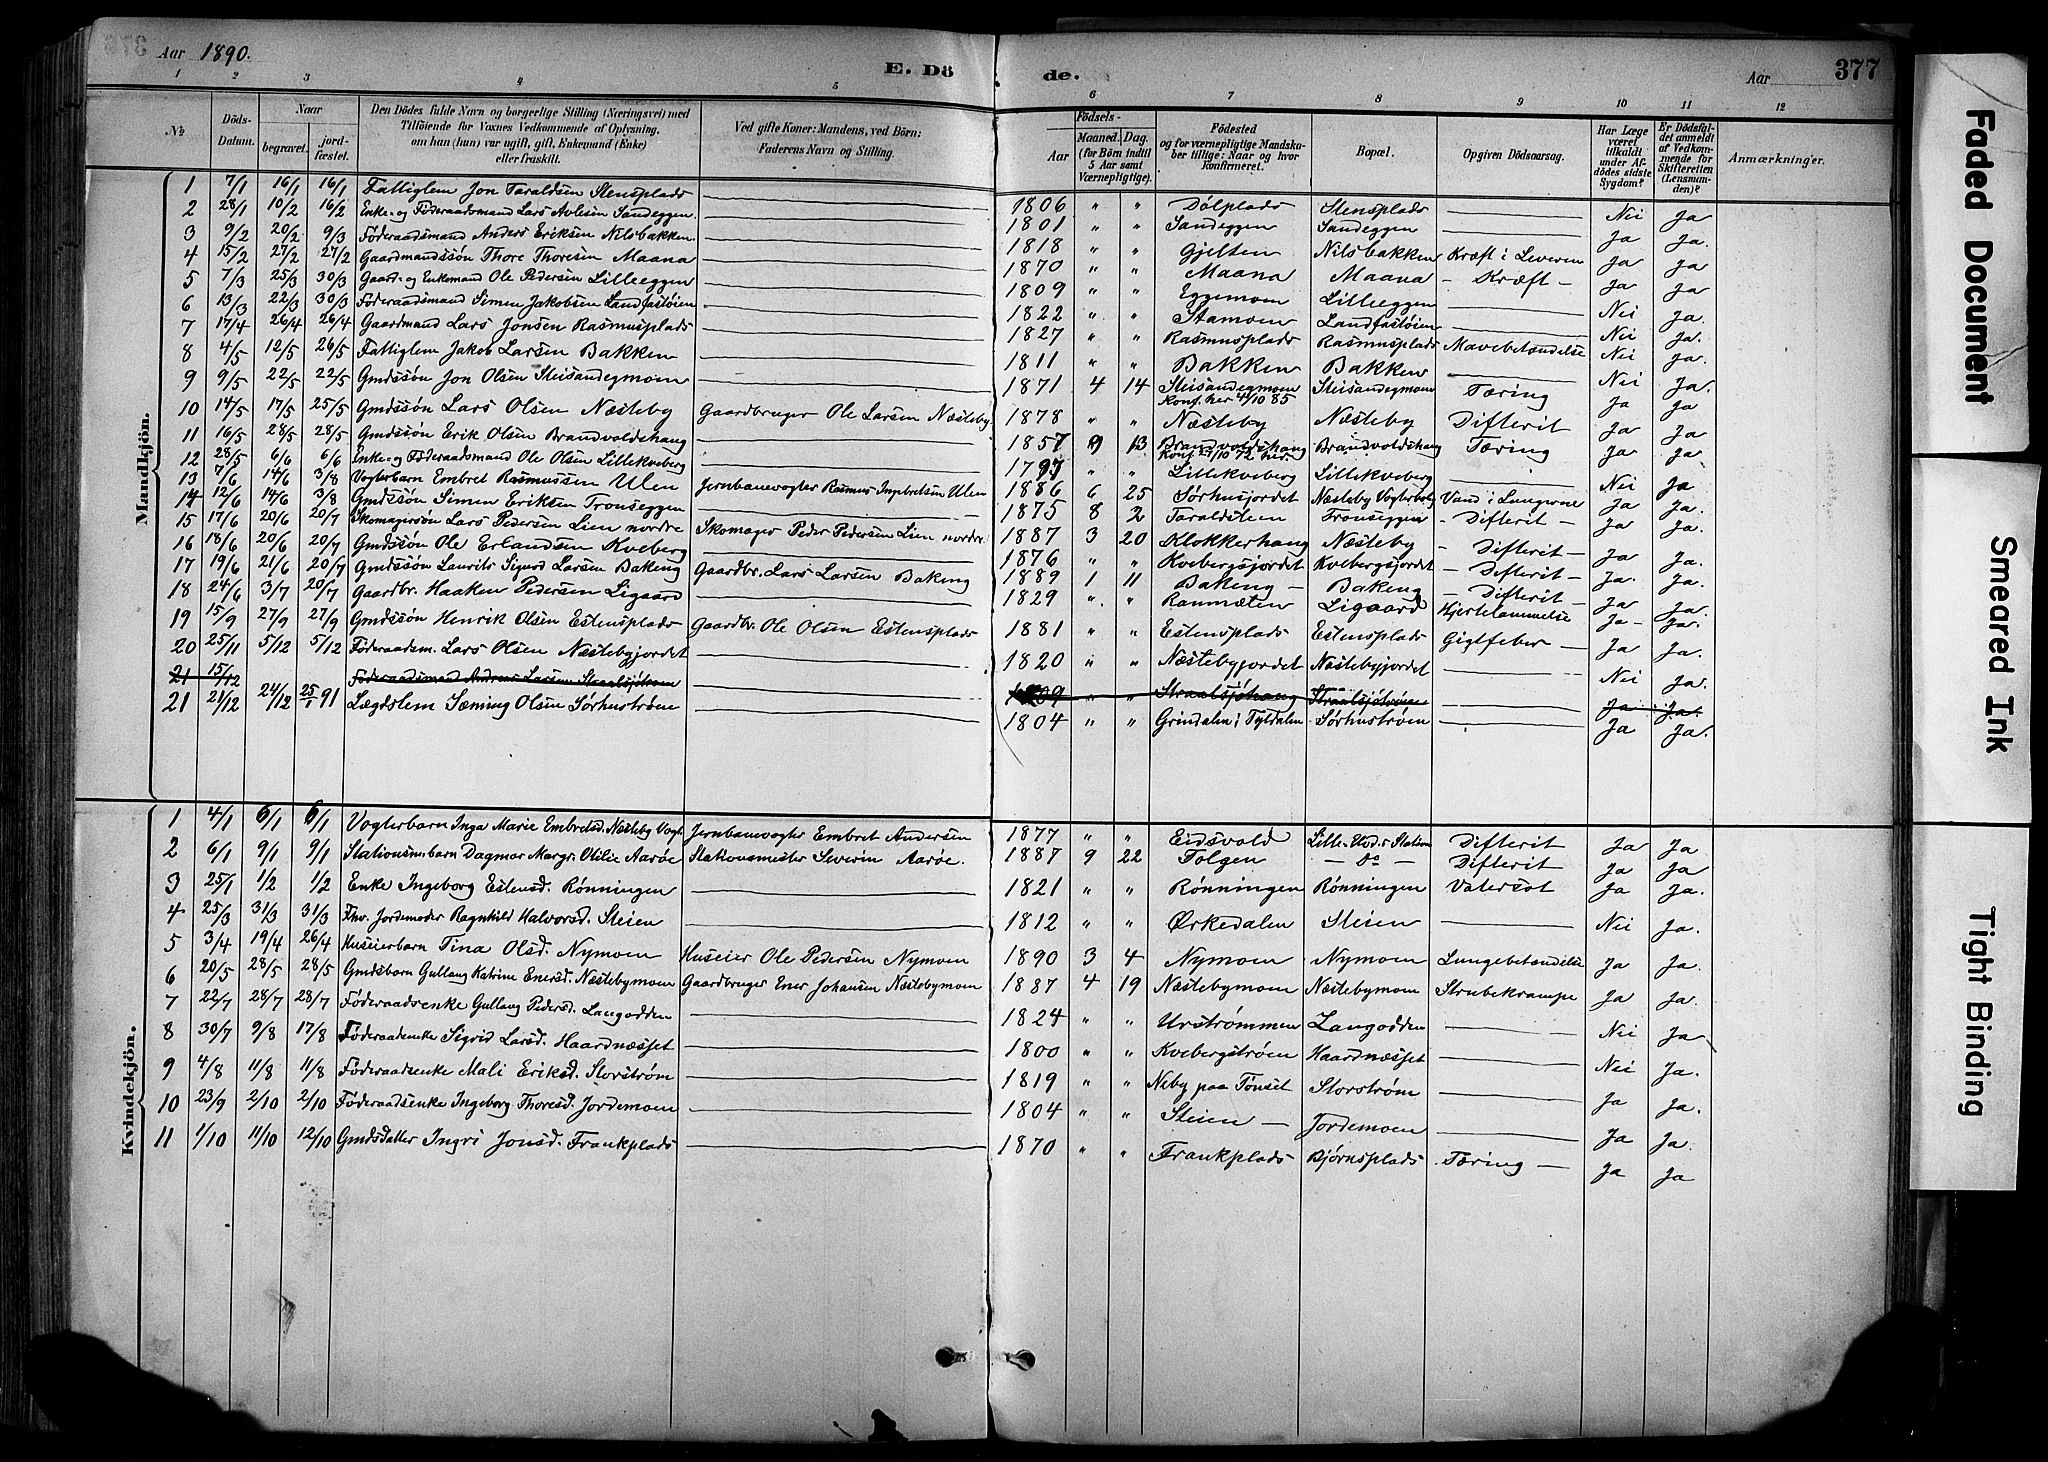 Aar 1890.
E. Dö de.
Aar
377
1 2 3 4 5 6 7 8 9 10 11 12
№
Döds-Datum.
Naar begravet. jordfæstet.
Den Dödes fulde Navn og borgerlige Stilling (Næringsvei) med Tilföiende for Voxnes Vedkommende af Oplysning, om han (hun) var ugift, gift, Enkemand (Enke) eller fraskilt.
Ved gifte Koner: Mandens, ved Börn: Faderens Navn og Stilling.
Födsels-
Aar
Maaned. Dag.
(for Börn indtil 5 Aar samt Værnepligtige).
Födested og for værnepligtige Mandskaber tillige: Naar og hvor konfirmeret.
Bopæl.
Opgiven Dödsaarsag.
Har Læge været tilkaldt under Afdödes sidste Sygdom?
Er Dödsfaldet anmeldt af Vedkommende for Skifteretten (Lensmanden)?
Anmærkninger.
Mandkjön.
1 7/1 16/1 16/1 Fattiglem Jon Taraldsen Stensplads — 1806 " " Dölplads Stensplads — Nei Ja
2 28/1 10/2 16/2 Enke- og Föderaadsmand Lars Avlesen Sandeggen — 1801 " " Sandeggen Sandeggen — Ja Ja.
3 9/2 20/2 9/3 Föderaadsmand Anders Eriksen Nilsbakken — 1818 " " Gjelten Nilsbakken Kræft i Leveren Ja Ja
4 15/2 27/2 27/2 Gaardmandssön Thore Thoresen Maana — 1870 " " Maana Maana - Kræft - Ja Ja
5 7/3 25/3 30/3 Gaard- og Enkemand Ole Pedersen Lilleeggen — 1809 " " Eggemoen Lilleeggen — Nei Ja.
6 13/3 22/3 30/3 Föderaadsmand Simen Jakobsen Landfastöien — 1822 " " Stamoen Landfastöien — Nei Ja.
7 17/4 26/4 26/4 Gaardmand Lars Jonsen Rasmusplads — 1827 " " Rasmusplads Rasmusplads Mavebetændelse Nei Ja.
8 4/5 12/5 26/5 Fattiglem Jakob Larsen Bakken — 1811 " " Bakken Bakken — Nei Ja.
9 9/5 22/5 22/5 Gmdssön Jon Olsen Steisandegmoen — 1871 4 14 Steisandegmoen Konf. her 4/10 85 Steisandegmoen Tæring Ja Ja
10 14/5 17/5 25/5 Gmdssön Lars Olsen Næsteby Gaardbruger Ole Larsen Næsteby 1878 " " Næsteby Næsteby Difterit Ja Ja
11 16/5 28/5 28/5 Gmdssön Erik Olsen Brandvoldshang — 1857 9 13 Brandvoldshang Konf. 13/10 72 her. Brandvoldshang Tæring Ja Ja.
12 28/5 6/6 6/6 Enke- og Föderaadsmand Ole Olsen Lillekveberg — 1797 " " Lillekveberg Lillekveberg — Nei Ja
13 7/6 14/6 3/8 Vogterbarn Embret Rasmussen Ulen Jernbanevogter Rasmus Impbretsen Ulen 1886 6 25 Sörhusjordet Næsteby Vogterbolig Vand i Lungerne Ja Ja.
14 12/6 14/6 3/8 Gmdssön Simen Eriksen Tronseggen — 1875 8 2 Taraldsteen Tronseggen - Difterit - Ja Ja.
15 17/6 20/6 20/7 Skomagersön Lars Pedersen Lien nordre Skomager Peder Pedersen Lien nordre 1887 3 20 Klokkerhang Næsteby - Difterit - Ja Ja.
16 18/6 20/6 20/7 Gmdssön Ole Erlandsen Kveberg — 1876 " " Kvebergsjordet Kvebergsjordet - Difterit - Ja. Ja.
17 19/6 21/6 20/7 Gmdssön Laurits Sigurd Larsen Bakeng Gaardbr. Lars Larsen Bakeng 1889 1 11 Bakeng - Bakeng - Difterit - Ja Ja.
18 24/6 3/7 20/7 Gaardbr. Haaken Pedersen Ligaard — 1829 " " Ranmæten Ligaard Hjertelammelse Ja - Ja.
19 15/9 27/9 27/9 Gmdssön Henrik Olsen Estensplads Gaardbr. Ole Olsen Estensplads 1881 " " Estensplads Estensplads Gigtfeber - Ja Ja.
20 25/11 5/12 5/12 Föderaadsm. Lars Olsen Næstebyjordet — 1820 " " Næstebyjordet Næstebyjordet — Nei Ja.
21 15/12 Föderaadsmand Andreas Larsen Straalsjöström 1809 " " Straalsjöhang Straalsjöstrøm — Ja Ja.
21 21/12 24/12 25/1 91 Lægdslem Sæming Olsen Sörhuströen — 1804 " " Grindalen i Tyldalen Sørhustrøen — Ja Ja.
Kvindekjön.
1 4/1 6/1 6/1 Vogterbarn Inga Marie Embretsd. Næsteby Vogt. Jernbanevogter Embret Andersen 1877 " " Eidsvold Lille-Elvd.s Station Difterit Ja Ja
2 6/1 9/1 9/1 Stationsm.barn Dagmar Margr. Otilie Aarøe Stationsmester Severin Aarøe. 1887 9 22 Tolgen - Do - Difterit Ja Ja
3 25/1 1/2 1/2 Enke Ingeborg Estensd. Rønningen — 1821 " " Rønningen Rønningen Vatersot Ja Ja.
4 25/3 31/3 31/3 Fhv. Jordemoder Ragnhild Halvorsd. Steien — 1812 " " Ørkedalen Steien — Nei Ja.
5 3/4 19/4 26/4 Huseierbarn Tina Olsd. Nymoen Huseier Ole Pedersen Nymoen 1890 3 4 Nymoen Nymoen Lungebetændelse Ja Ja.
6 20/5 28/5 28/5 Gmdsbarn Gullaug Katrine Enersd. Næstebymoen Gaardbruger Ener Johansen Næstebymoen 1887 4 19 Næstebymoen Næstebymoen Strubekrampe Ja Ja.
7 22/7 28/7 28/7 Föderaadsenke Gullaug Pedersd. Langodden — 1824 " " Urstrømmen Langodden — Nei Ja
8 30/7 9/8 17/8 Föderaadenke Sigrid Larsd. Haardnæsset — 1800 " " Kvebergstrøen Haardnæsset — Nei Ja.
9 4/8 11/8 11/8 Föderaadsenke Mali Eriksd. Storstrøm — 1819 " " Neby paa Tønset Storstrøm — Ja Ja.
10 23/9 2/10 2/10 Föderaadsenke Ingeborg Thoresd. Jordemoen — 1804 " " Steien - Jordemoen — Ja Ja.
11 1/10 11/10 12/10 Gmdsdatter Ingri Jonsd. Frankplads — 1870 " " Frankplads Bjørnsplads Tæring - Ja Ja
Faded Document
Smeared Ink
Tight Binding